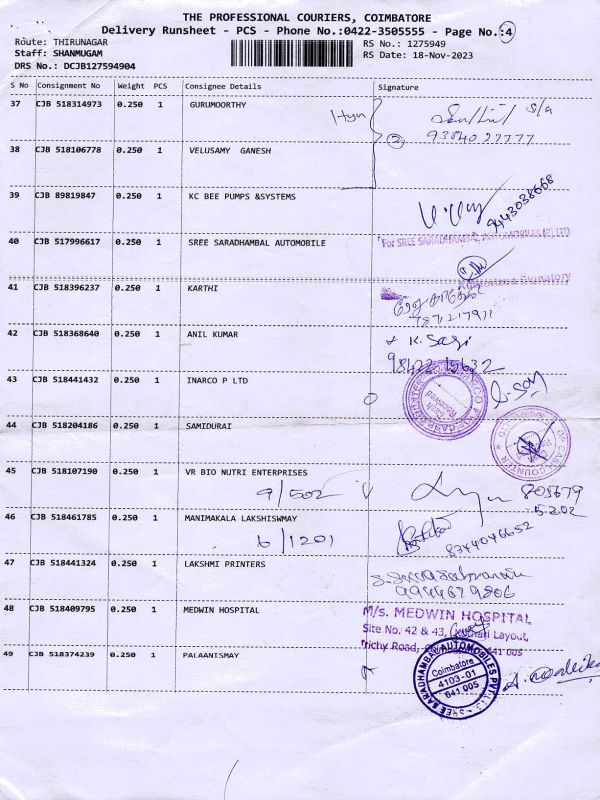 THE PROFESSIONAL COURIERS, COIMBATORE
Delivery Runsheet - PCS - Phone No.:0422-3505555 - Page No.:4
Route: THIRUNAGAR
RS No.: 1275949
Staff: SHANMUGAM
RS Date: 18-Nov-2023
DRS No.: DCJB127594904
S No Consignment No Weight PCS Consignee Details Signature
37 CJB 518314973 0.250 1 GURUMOORTHY
9384027777
38 CJB 518106778 0.250 1 VELUSAMY GANESH
39 CJB 89819847 0.250 1 KC BEE PUMPS &SYSTEMS
9443038668
40 CJB 517996617 0.250 1 SREE SARADHAMBAL AUTOMOBILE
For SREE SARADHAMBAL AUTOMOBILES (P) LTD
Authorised Signatory
41 CJB 518396237 0.250 1 KARTHI
42 CJB 518368640 0.250 1 ANIL KUMAR
K. Sasi
98422 15632
43 CJB 518441432 0.250 1 INARCO P LTD
44 CJB 518204186 0.250 1 SAMIDURAI
45 CJB 518107190 0.250 1 VR BIO NUTRI ENTERPRISES
9/502
805679
5202
46 CJB 518461785 0.250 1 MANIMAKALA LAKSHISWMAY
6/1201
8344046652
47 CJB 518441324 0.250 1 LAKSHMI PRINTERS
9944679806
48 CJB 518409795 0.250 1 MEDWIN HOSPITAL
M/s. MEDWIN HOSPITAL
Site No. 42 & 43, Kothari Layout,
Trichy Road, 641 005
49 CJB 518374239 0.250 1 PALAANISMAY
SREE SARADHAMBAL AUTOMOBILES PVT LTD
Coimbatore
4103-01
641 005